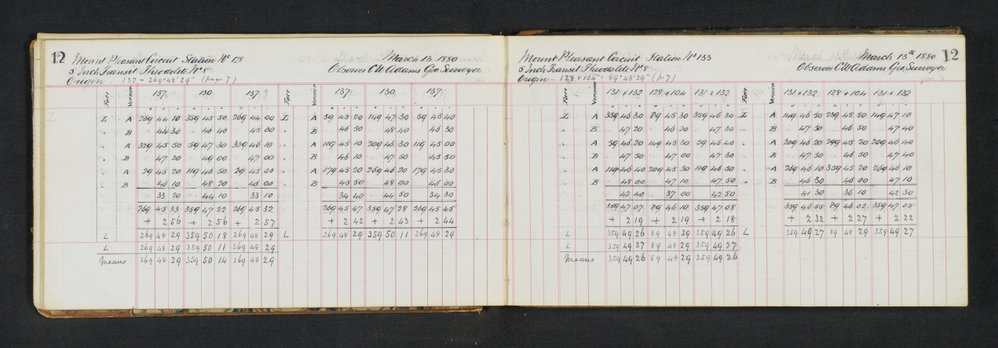 12
Mount Pleasant Circuit Station No 128 March 13 1880
5 Inch Transit Theodolite No 8 Observer C W Adams Geo Surveyor
Origin 137 - 269° 48' 29" (page 7)
Face Vernier 137 130 137 Face Vernier 137 130 137
L A 269 44 10 359 45 50 269 44 00 L A 59 45 20 149 47 30 59 45 40
" B 44 30 46 40 45 00 " B 45 50 48 40 46 30
" A 329 45 50 59 47 30 329 46 10 " A 119 45 10 209 46 30 119 45 00
" B 47 20 49 00 47 00 " B 46 10 47 50 45 50
" A 29 45 20 119 46 50 29 45 00 " A 179 45 20 269 46 20 179 45 30
" B 46 10 48 30 46 00 " B 46 50 48 00 46 00
33 20 44 10 33 10 34 40 44 50 34 30
269 45 33 359 47 22 269 45 32 269 45 47 359 47 28 269 45 45
+ 2 56 + 2 56 + 2 57 + 2 42 + 2 43 + 2 44
L 269 48 29 359 50 18 269 48 29 L 269 48 29 359 50 11 269 48 29
L 269 48 29 359 50 11 269 48 29
Means 269 48 29 359 50 14 269 48 29
12
Mount Pleasant Circuit Station No 133 March 13th 1880
5 Inch Transit Theodolite No 8 Observer C W Adams Geo Surveyor
Origin - 128 × 104 - 89° 48' 29" (p 7)
Face Vernier 131 × 132 128 × 104 131 × 132 Face Vernier 131 × 132 128 × 104 131 × 132
L A 359 46 30 89 45 30 359 46 30 L A 119 46 50 209 45 50 119 47 10
" B 47 20 46 20 47 30 " B 47 30 46 50 47 40
" A 59 46 20 149 45 30 59 46 40 " A 209 46 20 299 45 20 209 46 50
" B 47 50 47 00 47 30 " B 47 30 46 50 47 40
" A 119 46 40 209 45 30 119 46 50 " A 269 46 10 359 45 20 269 46 10
" B 48 00 47 10 47 50 " B 46 30 46 00 47 10
42 40 37 00 42 50 41 30 36 10 42 30
359 47 07 89 46 10 359 47 08 359 46 55 89 46 02 359 47 05
+ 2 19 + 2 19 + 2 18 + 2 32 + 2 27 + 2 22
L 359 49 26 89 48 29 359 49 26 L 359 49 27 89 48 29 359 49 27
L 359 49 27 89 48 29 359 49 27
Means 359 49 26 89 48 29 359 49 26